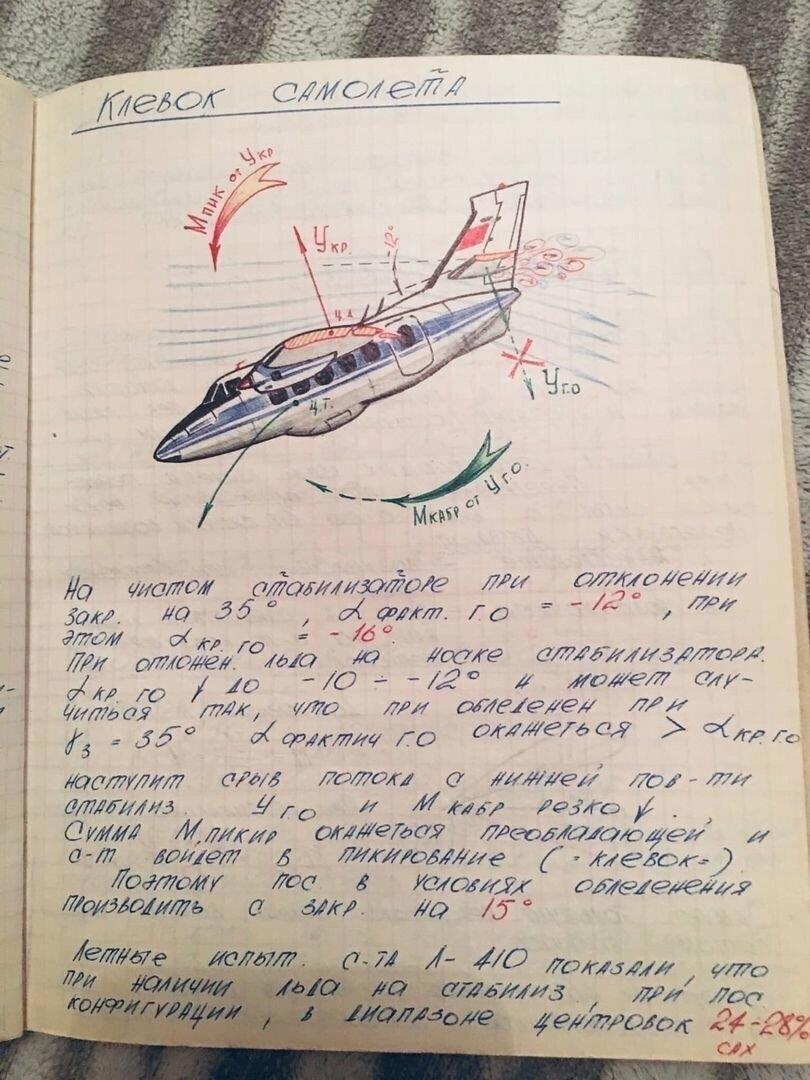 Клевок самолета
М пик от Укр
Укр.
-12°
ц.д.
ц.т.
Уг.о
Мкабр от Уг.о.
На чистом стабилизаторе при отклонении
закр. на 35°, α факт. г.о = -12°, при
этом α кр. го = -16°
При отложен. льда на носке стабилизатора.
α кр. го ↓ до -10 ÷ -12° и может слу-
читься так, что при обледенен при
γз = 35° α фактич г.о окажеться > α кр.г.о
наступит срыв потока с нижней пов-ти
стабилиз. Уг.о и М кабр резко ↓.
Сумма М пикир окажеться преобладающей и
с-т войдет в пикирование (=клевок=).
Поэтому пос в условиях обледенения
производить с закр. на 15°
Летные испыт. с-та Л-410 показали, что
при наличии льда на стабилиз, при пос
конфигурации, в диапазоне центровок 24-28%
сах